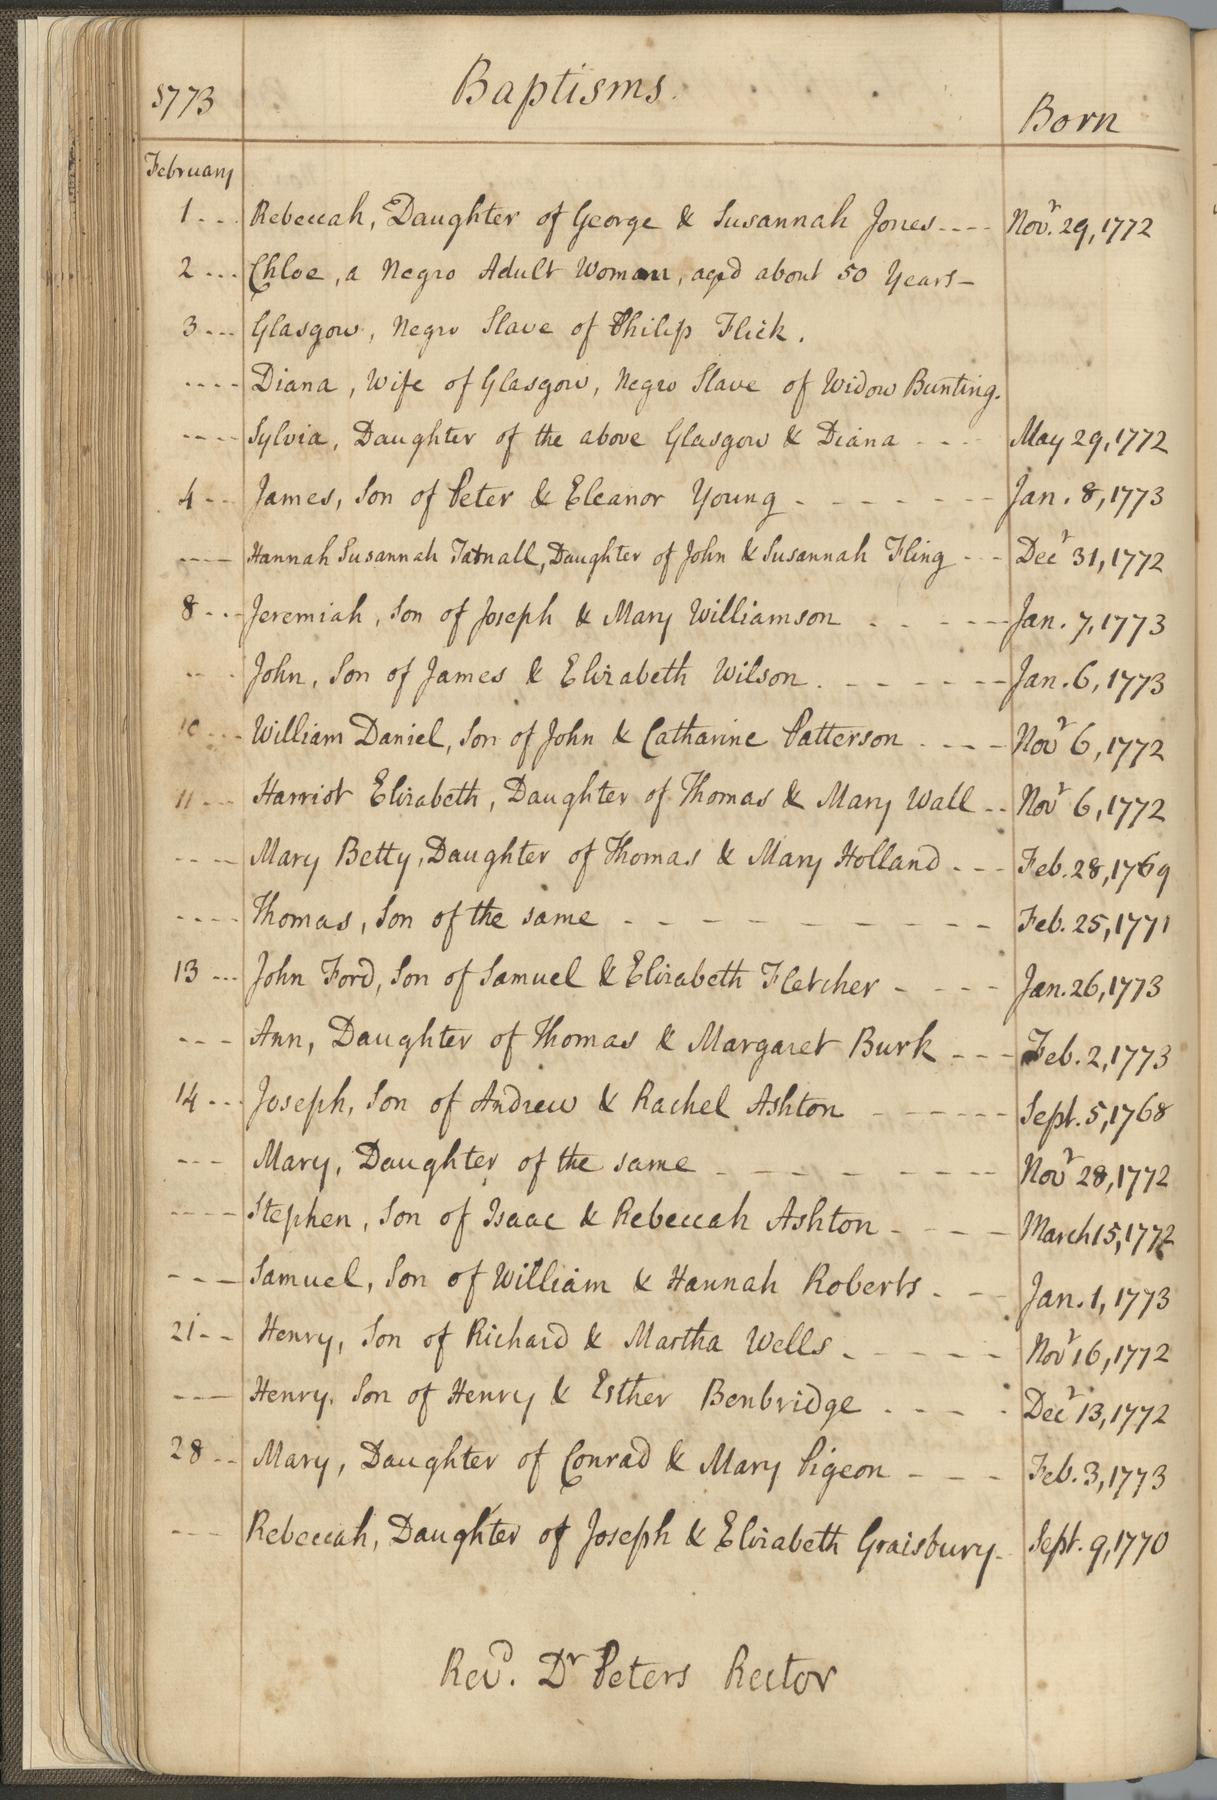 1773 Baptisms. Born
February
1 - - - Rebeccah, Daughter of George & Susannah Jones - - - - Novr. 29, 1772
2 - - - Chloe, a Negro Adult Woman, aged about 50 Years -
3 - - - Glasgow, Negro Slave of Philip Flick.
- - - - Diana, Wife of Glasgow, Negro Slave of Widow Bunting.
- - - - Sylvia, Daughter of the above Glasgow & Diana - - - - May 29, 1772
4 - - - James, Son of Peter & Eleanor Young - - - - - - - Jan. 8, 1773
- - - - Hannah Susannah Tatnall, Daughter of John & Susannah Fling - - - Decr 31, 1772
8 - - - Jeremiah, Son of Joseph & Mary Williamson - - - - - - Jan. 7, 1773
- - - John, Son of James & Elizabeth Wilson - - - - - - - Jan. 6, 1773
10 - - - William Daniel, Son of John & Catharine Patterson - - - - Novr 6, 1772
11 - - - Harriot Elizabeth, Daughter of Thomas & Mary Wall - - Novr 6, 1772
- - - - Mary Betty, Daughter of Thomas & Mary Holland - - - Feb. 28, 1769
- - - - Thomas, Son of the same - - - - - - - - - - Feb. 25, 1771
13 - - - John Ford, Son of Samuel & Elizabeth Fletcher - - - - Jan. 26, 1773
- - - Ann, Daughter of Thomas & Margaret Burk - - - Feb. 2, 1773
14 - - - Joseph, Son of Andrew & Rachel Ashton - - - - - - Sept. 5, 1768
- - - Mary, Daughter of the same - - - - - - - - - Novr 28, 1772
- - - - Stephen, Son of Isaac & Rebeccah Ashton - - - - March 15, 1772
- - - Samuel, Son of William & Hannah Roberts - - - Jan. 1, 1773
21 - - Henry, Son of Richard & Martha Wells - - - - - - Novr 16, 1772
- - - Henry. Son of Henry & Esther Benbridge - - - - - Decr 13, 1772
28 - - Mary, Daughter of Conrad & Mary Pigeon - - - Feb. 3, 1773
- - - Rebeccah, Daughter of Joseph & Elizabeth Graisbury - Sept. 9, 1770
Revd. Dr Peters Rector